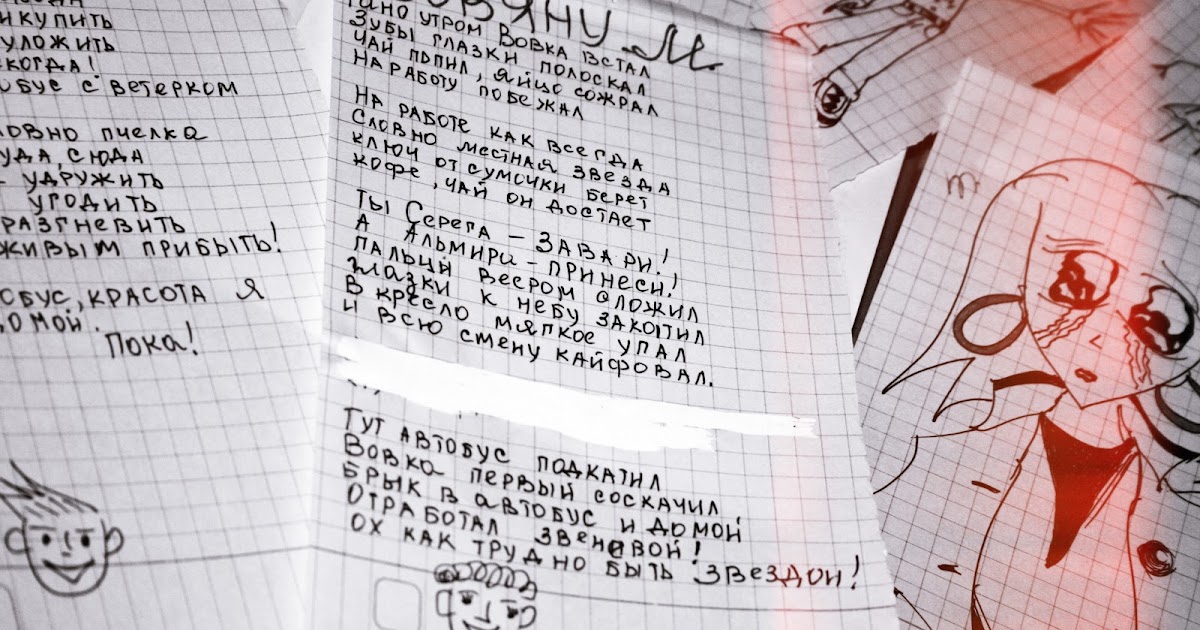 КУПИТЬ
УЛОЖИТЬ
КОГДА!
ОБУС С ВЕТЕРКОМ
ЛОВНО ПЧЕЛКА
УДА, СЮДА
- УДРУЖИТЬ
УГОДИТЬ
РАЗГНЕВИТЬ
ЖИВЫМ ПРИБЫТЬ!
ОБУС, КРАСОТА Я
ДОМОЙ.
Пока!
М.
РАНО УТРОМ ВОВКА ВСТАЛ
ЗУБЫ ГЛАЗКИ ПОЛОСКАЛ
ЧАЙ ПОПИЛ, ЯЙЦО СОЖРАЛ
НА РАБОТУ ПОБЕЖАЛ
НА РАБОТЕ КАК ВСЕГДА
СЛОВНО МЕСТНАЯ ЗВЕЗДА
КЛЮЧ ОТ СУМОЧКИ БЕРЕТ
КОФЕ, ЧАЙ ОН ДОСТАЕТ
ТЫ СЕРЕГА - ЗАВАРИ!
А АЛЬМИРИ - ПРИНЕСИ!
ПАЛЬЦЫ ВЕЕРОМ СЛОЖИЛ
ГЛАЗКИ К НЕБУ ЗАКАТИЛ
В КРЕСЛО МЯГКОЕ УПАЛ
И ВСЮ СМЕНУ КАЙФОВАЛ.
ТУТ АВТОБУС ПОДКАТИЛ
ВОВКА ПЕРВЫЙ СОСКАЧИЛ
БРЫК В АВТОБУС И ДОМОЙ
ОТРАБОТАЛ ЗВЕНЕВОЙ!
ОХ КАК ТРУДНО БЫТЬ ЗВЕЗДОЙ!